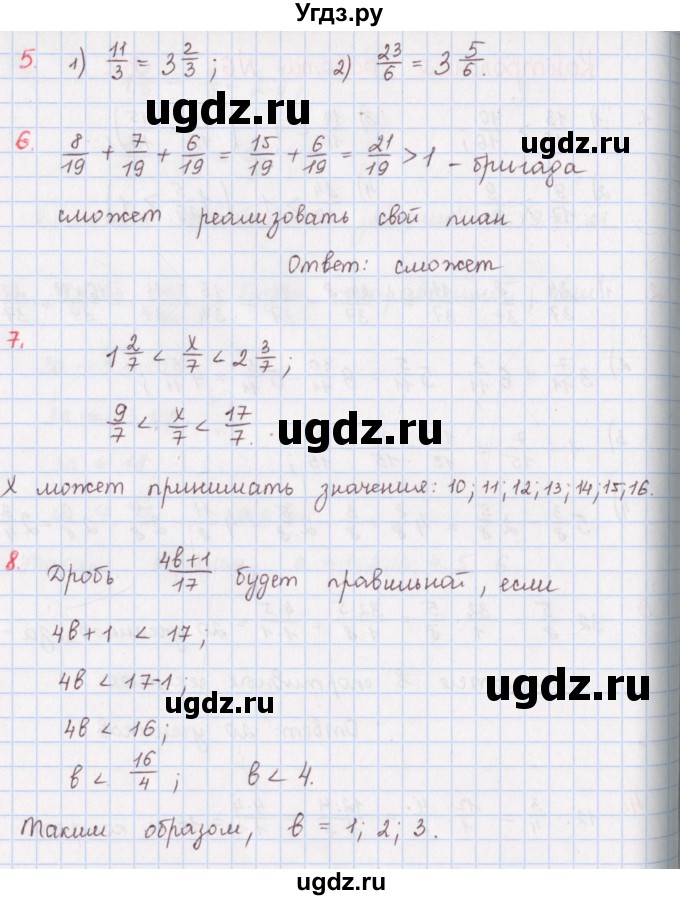 Угдз.ру
5. 1) 11/3 = 3 2/3 ; 2) 23/6 = 3 5/6.
ugdz.ru
ugdz.ru
6. 8/19 + 7/19 + 6/19 = 15/19 + 6/19 = 21/19 > 1 – бригада
сможет реализовать свой план
Ответ: сможет
ugdz.ru
7. 1 2/7 < x/7 < 2 3/7 ;
9/7 < x/7 < 17/7.
ugdz.ru
X может принимать значения: 10; 11; 12; 13; 14; 15; 16.
8. Дробь 4в+1/17 будет правильной, если
4в + 1 < 17;
4в < 17-1;
ugdz.ru
ugdz.ru
4в < 16;
в < 16/4 ; в < 4.
Таким образом, в = 1; 2; 3.
ugdz.ru
ugdz.ru